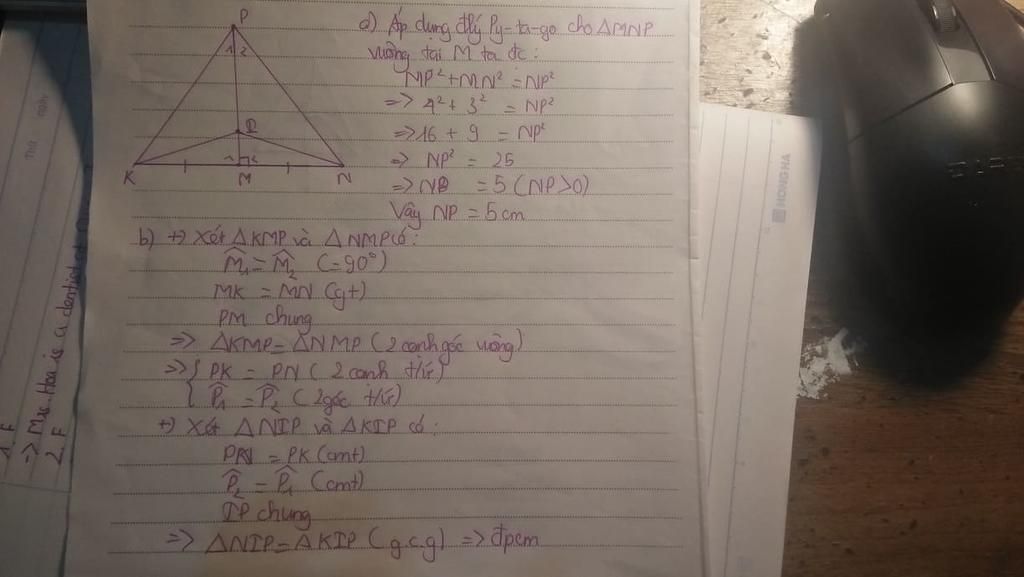 P
1 2
I
1 2
K M N
a) Áp dụng đlý Py-ta-go cho ΔMNP
vuông tại M ta đc:
MP² + MN² = NP²
=> 4² + 3² = NP²
=> 16 + 9 = NP²
=> NP² = 25
=> NP = 5 (NP>0)
Vậy NP = 5cm
b) +) Xét ΔKMP và ΔNMP có:
M̂₁ = M̂₂ (=90°)
MK = MN (gt)
PM chung
=> ΔKMP = ΔNMP (2 cạnh góc vuông)
=> { PK = PN (2 cạnh t/ứ)
P̂₁ = P̂₂ (2 góc t/ứ)
+) Xét ΔNIP và ΔKIP có:
PN = PK (cmt)
P̂₂ = P̂₁ (cmt)
IP chung
=> ΔNIP = ΔKIP (g.c.g) => đpcm
HONG HA
1. F
=> Mrs Hoa is a dentist
2. F